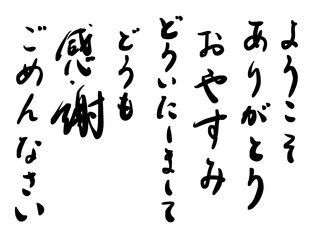 ようこそ
ありがとう
おやすみ
どういたしまして
どうも
感謝
ごめんなさい